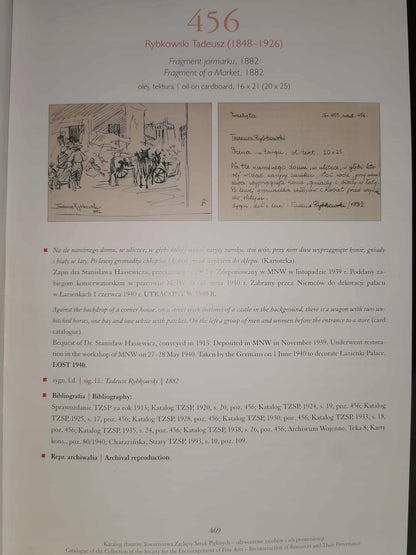 456
Rybkowski Tadeusz (1848–1926)
Fragment jarmarku, 1882
Fragment of a Market, 1882
olej, tektura | oil on cardboard, 16 x 21 (20 x 25)
Tadeusz Rybkowski
1882
456.
Tadeusz Rybkowski
ol. tekt. 20x25
Na tle narożnego domu, w uliczce, w głębi
Rybkowski / 1882
Na tle narożnego domu, w uliczce, w głębi której widać zarysy zamku, stoi wóz, przy nim dwa wyprzęgnięte konie, gniady
i biały w łaty. Po lewej gromadka chłopów i kobiet przed wejściem do sklepu. (Kartoteka)
Zapis dra Stanisława Hassewicza, przekazany 1913 r. Zdeponowany w MNW w listopadzie 1939 r. Poddany za-
biegom konserwatorskim w pracowni MNW maja 1940 r. Zabrany przez Niemców do dekoracji pałacu
w Łazienkach 1 czerwca 1940 r. UTRACONY W 1940 R.
Against the backdrop of a corner house, on a street with outlines of a castle in the background, there is a wagon with two un-
hitched horses, one bay and one white with patches. On the left a group of men and women before the entrance to a store (card
catalogue).
Bequest of Dr. Stanisław Hassewicz, conveyed in 1913. Deposited in MNW in November 1939. Underwent resto-
ration in the workshop of MNW on 27–28 May 1940. Taken by the Germans on 1 June 1940 to decorate Łazienki Palace.
LOST 1940.
sygn. l.d. | sig. l.l.: Tadeusz Rybkowski | 1882
Bibliografia | Bibliography:
Sprawozdanie TZSP za rok 1913; Katalog TZSP, 1920, s. 20, poz. 456; Katalog TZSP, 1924, s. 19, poz. 456; Katalog
TZSP, 1925, s. 17, poz. 456; Katalog TZSP, 1928, s. 27, poz. 456; Katalog TZSP, 1930, poz. 456; Katalog TZSP, 1933, s. 18,
poz. 456; Katalog TZSP, 1935, s. 24, poz. 456; Katalog TZSP, 1938, s. 26, poz. 456; Archiwum Wojenne, Teka 8; Karty
kons., poz. 80/1940; Charazińska, Straty TZSP, 1993, s. 10, poz. 109.
Repr. archiwalna | Archival reproduction
469
Katalog zbiorów Towarzystwa Zachęty Sztuk Pięknych – odtworzenie zasobów i ich proweniencji
Catalogue of the Collection of the Society for the Encouragement of Fine Arts – Reconstruction of Resources and Their Provenance